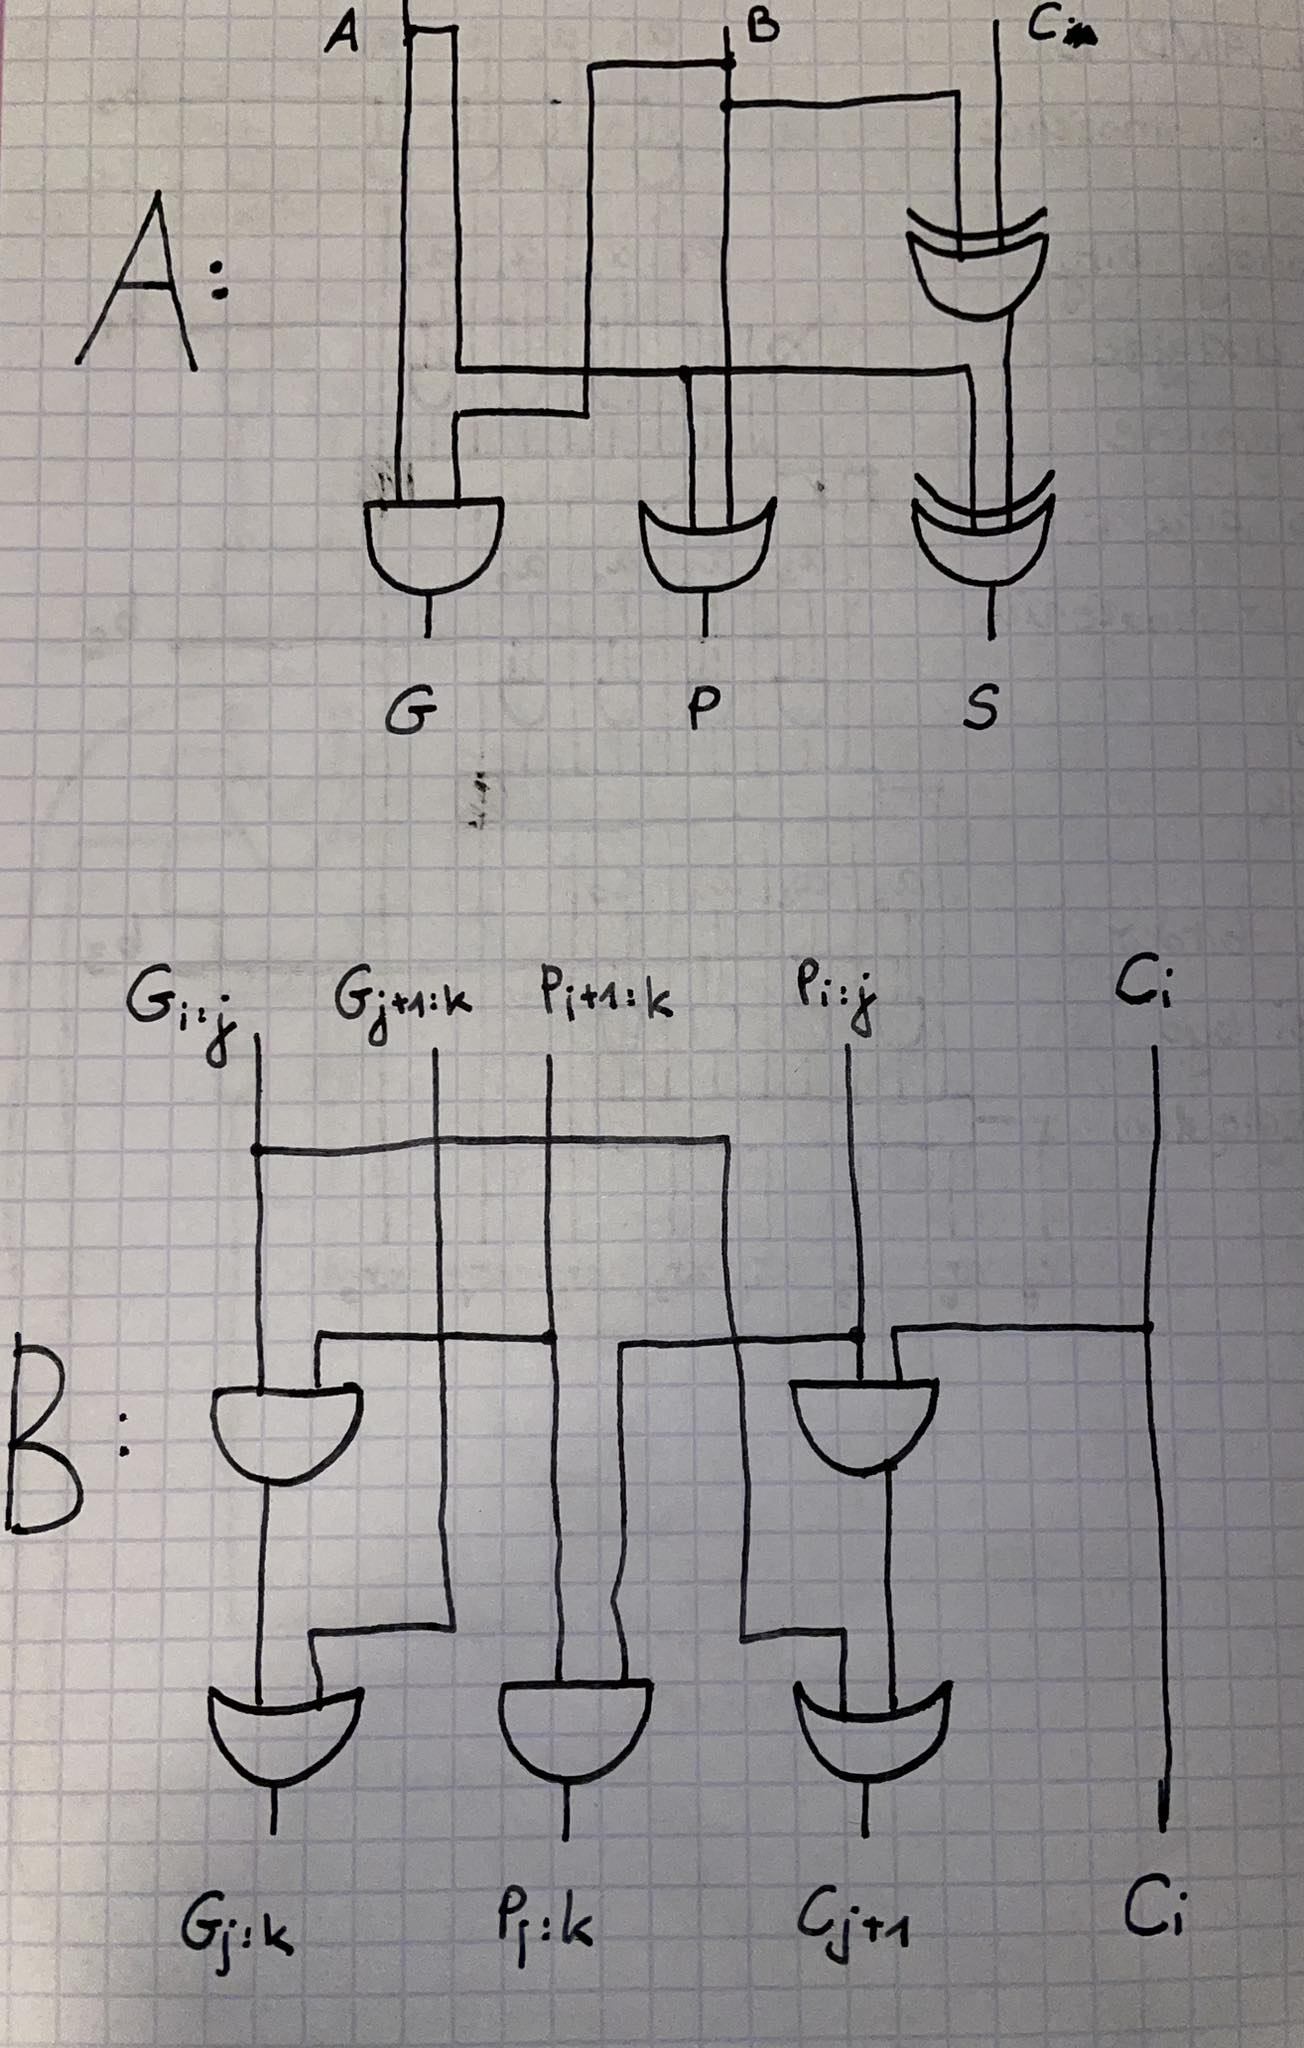 A B Ci
A:
G P S
Gi:j Gj+1:k Pj+1:k Pi:j Ci
B:
Gj:k Pj:k Cj+1 Ci